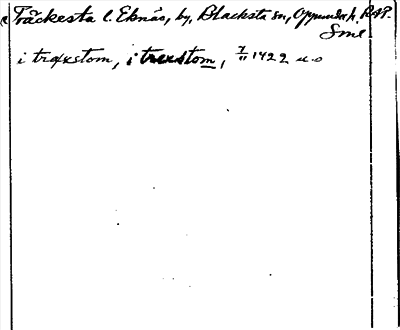 Träckesta l. Eknäs, by, Blacksta sn, Oppunda h. RAP.
Sml
i træxstom, i trexstom, 7/11 1422 u.o